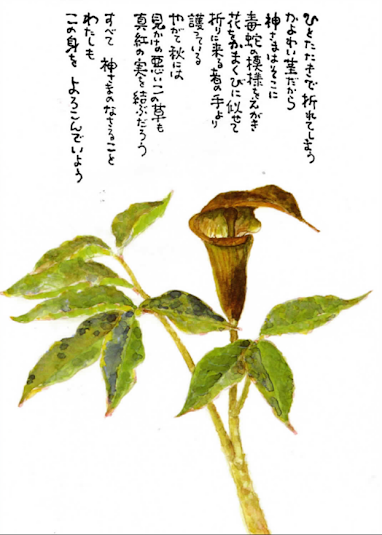 ひとたたきで折れてしまう
かよわい茎だから
神さまはそこに
毒蛇の模様をえがき
花をかまくびに似せて
折りに来る者の手より
護っている
やがて秋には
見かけの悪いこの草も
真紅の実を結ぶだろう
すべて 神さまのなさること
わたしも
この身を よろこんでいよう